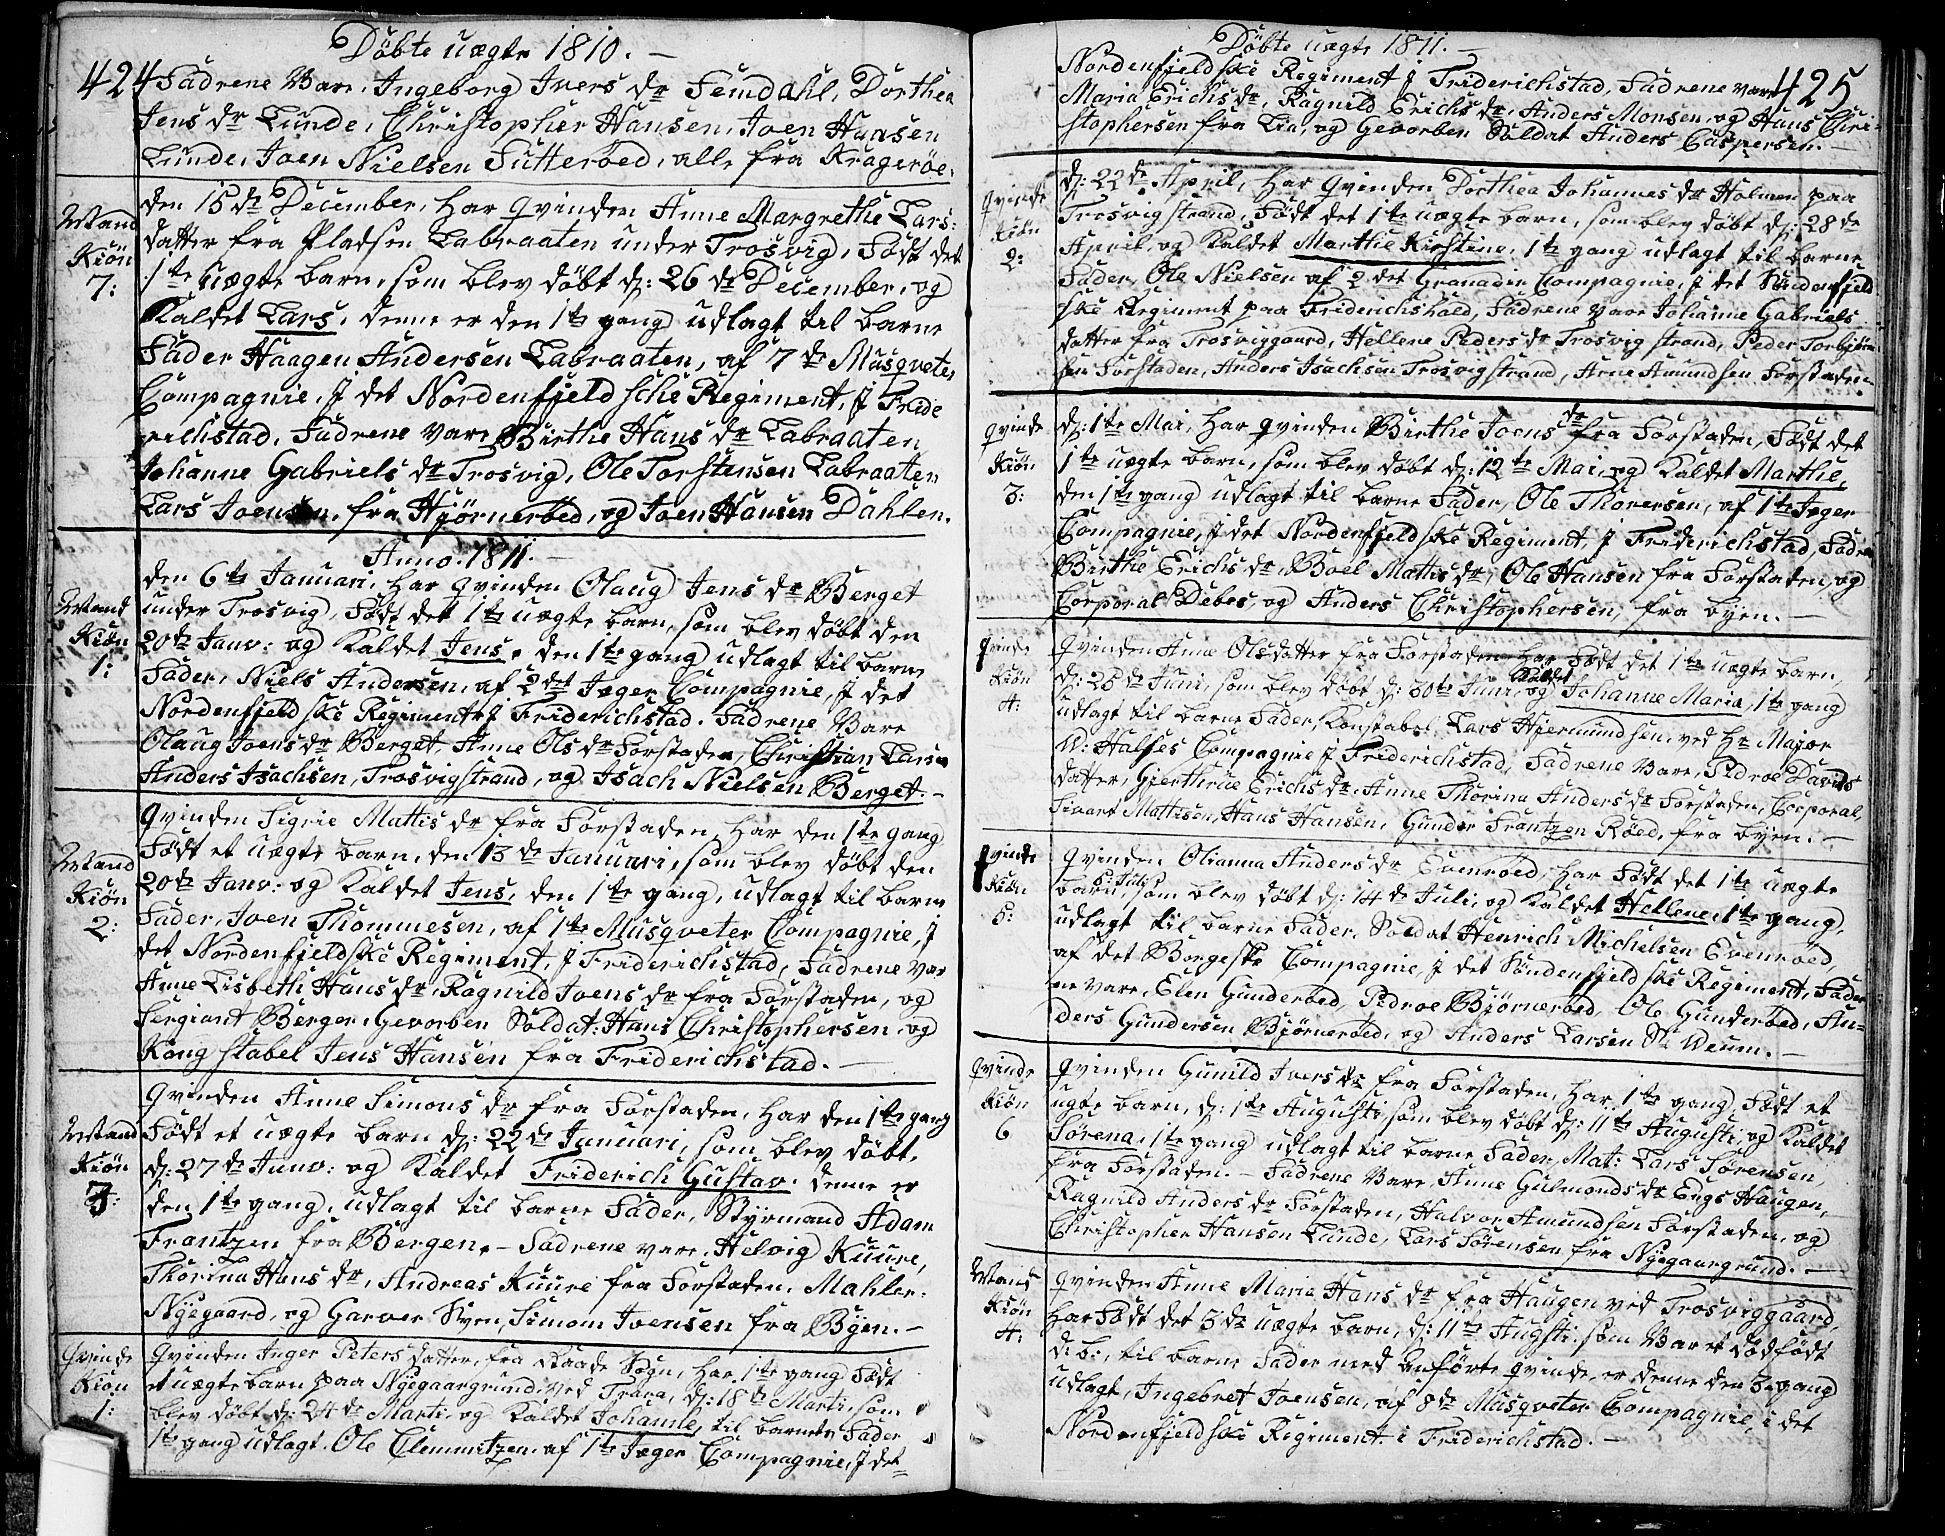 Döbte uægte 1810. —
424
Fadrene Vare, Ingeborg Ivers dr Semdahl, Dorthea
Jens dr Lunde, Christopher Hansen, Joen Hansen
Lunde, Joen Nielsen Sutteröed, alle fra Kragerøe.
Mand
Kiön
7:
den 15de December, har qvinden Anne Margrethe Lars:
datter fra Pladsen Labraaten under Trosvig, Födt det
1te uægte barn, som blev döbt d: 26de December, og
Kaldet Lars, denne er den 1te gang udlagt til barne
Fader Haagen Andersen Labraaten, af 7de Musqveteer
Compagnie, I det Nordenfjeldsche Regiment, I Fride
richstad, Fadrene vare Birthe Hans dr Labraaten
Johanne Gabriels dr Trosvig, Ole Torstensen Labraaten
Lars Joensen, fra Hjörneröed, og Joen Hansen Dahlen.
Anno. 1811. —
Mand
Kiön
1:
den 6te Januari, har qvinden Olaug Jens dr Berget
under Trosvig, Födt det 1te uægte barn, som blev döbt den
20de Janv: og Kaldet Jens, den 1te gang udlagt til barne
Fader, Niels Andersen, af 2det Jæger Compagnie, I det
Nordenfjeldske Regiment I Friderichstad. Fadrene Vare
Olaug Joens dr Berget, Anne Ols dr Forstaden, Christian Larsen
Anders Isachsen, Trosvigstrand, og Isach Nielsen Berget. —
Mand
Kiön
2:
Qvinden Sigrie Mattis dr fra Forstaden, har den 1te gang
Födt et uægte barn, den 13de Januari, som blev döbt den
20de Janv: og Kaldet Jens, den 1te gang, udlagt til barne
Fader, Joen Thommesen, af 1te Musqveter Compagnie, I
det Nordenfjeldske Regiment, I Friderichstad, Fadrene var
Anne Lisbeth Hans dr, Ragnild Joens dr fra Forstaden, og
Sergiant Berger, Gevorben Soldat: Hans Christophersen, og
Kongstabel Jens Hansen fra Friderichstad. —
Mand
Kiön
3:
Qvinden Anne Simons dr fra Forstaden, har den 1te gang
Födt et uægte barn d: 22de Januari, som blev döbt,
d: 27de Janv: og Kaldet Friderich Gustav. denne er
den 1te gang, udlagt til barne Fader, Styrmand Adam
Frantzen fra Bergen. — Fadrene vare, Helvig Kuure,
Thorina Hans dr, Andreas Kuure fra Forstaden, Mahler.
Nyegaard, og Garver Svend, Simom Joensen fra Byen. —
Qvinde
Kiön
1:
Qvinden Inger Peters datter, fra Raade Sogn, har 1te gang Födt
et uægte barn paa Nyegaargrund ved Trara, d: 18de Marti, som
blev döbt d: 24de Marti og Kaldet Johanne, til barnets Fader
1te gang udlagt, Ole Clemmitzen af 1te Jæger Compagnie, I det
Döbte uægte 1811. —
425
Nordenfjeldske Regiment I Friderichstad, Fadrene vare
Maria Erichs dr, Ragnild Erichs dr, Anders Monsen, og Hans Chri-
stophersen fra Lia, og Gevorben Soldat Anders Caspersen. —
Qvinde
Kiön
2:
d: 22de April, har qvinden Dorthea Johannes dr Holmen paa
Trosvigstrand, Födt det 1te uægte barn, som blev döbt d: 28de
April og Kaldet Marthe Kirstine, 1te gang udlagt til barne
Fader, Ole Nielsen af 2det Granadir Compagnie, I det Söndenfjeld
ske Regiment paa Friderichshald, Fadrene vare Johanne Gabriels
datter fra Trosviggaard, Hellene Peders dr Trosvigstrand, Peder Torbjörn
sen Forstaden, Anders Isachsen Trosvigstrand, Arne Amundsen Forstaden.
Qvinde
Kiön
3:
d: 1te Mai, har qvinden Birthe Joens dr fra Forstaden, Födt det
1te uægte barn, som blev döbt d: 12te Mai, og Kaldet Marthe,
den 1te gang udlagt til barne Fader, Ole Thoresen, af 1te Jæger
Compagnie, I det Nordenfjeldske Regiment, I Friderichstad, Fadre
Birthe Erichs dr, Boel Mattis dr, Ole Hansen fra Forstaden, og
Corporal Debes, og Anders Christophersen, fra byen. —
Qvinde
Kiön
4:
Qvinden Anne Olsdatter fra Forstaden har Födt det 1te uægte barn,
d: 28de Juni, som blev döbt d: 30te Juni, og Kaldet Johanne Maria, 1te gang
udlagt til barne Fader, Konstabel Lars Hjermundsen, ved Hr Major
W: Halses Compagnie I Friderichstad, Fadrene Vare, Pedroe Davids
datter, Gjerthrue Erichs dr, Anne Thorina Anders dr Forstaden, Corporal
Sivart Mattisen, Hans Hansen, Gunder Frantzen Röed, fra byen. —
Qvinde
Kiön
5:
Qvinden Olianna Anders dr Evenröed, har Födt det 1te uægte
barn 5: Juli, som blev döbt d: 14de Juli, og Kaldet Hellene, 1te gang,
udlagt til barne Fader, Soldat Henrich Michelsen Evenröed,
af det Borgeske Compagnie, I det Söndenfjeldske Regiment, Fader
ne vare, Elen Gunderöed, Pedroe Björneröed, Ole Gunderöed, An-
ders Gundersen Björneröed, og Anders Larsen St: Weum. —
Qvinde
Kiön
6
Qvinden Gunild Ivers dr fra Forstaden, har 1te gang Födt et
ugte barn, d: 1te Augusti, som blev döbt d: 11te Augusti, og Kaldet
Sörena, 1te gang udlagt til barne Fader, Mat: Lars Sörensen,
fra Forstaden. — Fadrene Vare, Anne Gulmonds dr Engs Haugen,
Ragnild Anders dr Forstaden, Halvor Amundsen Forstaden, og
Christopher Hansen Lunde, Lars Sörensen fra Nyegaargrund. —
Mand
Kiön
4:
Qvinden Anne Maria Hans dr fra Haugen ved Trosviggaard,
har Födt det 3de uægte barn, d: 11te Augsti, som Var et dödfödt
d: b:, til barne Fader med anförte qvinde, er denne den 3e gang
udlagt, Ingebret Joensen, af 8de Musqveter Compagnie, i det
Nordenfjeldske Regiment i Friderichstad. —